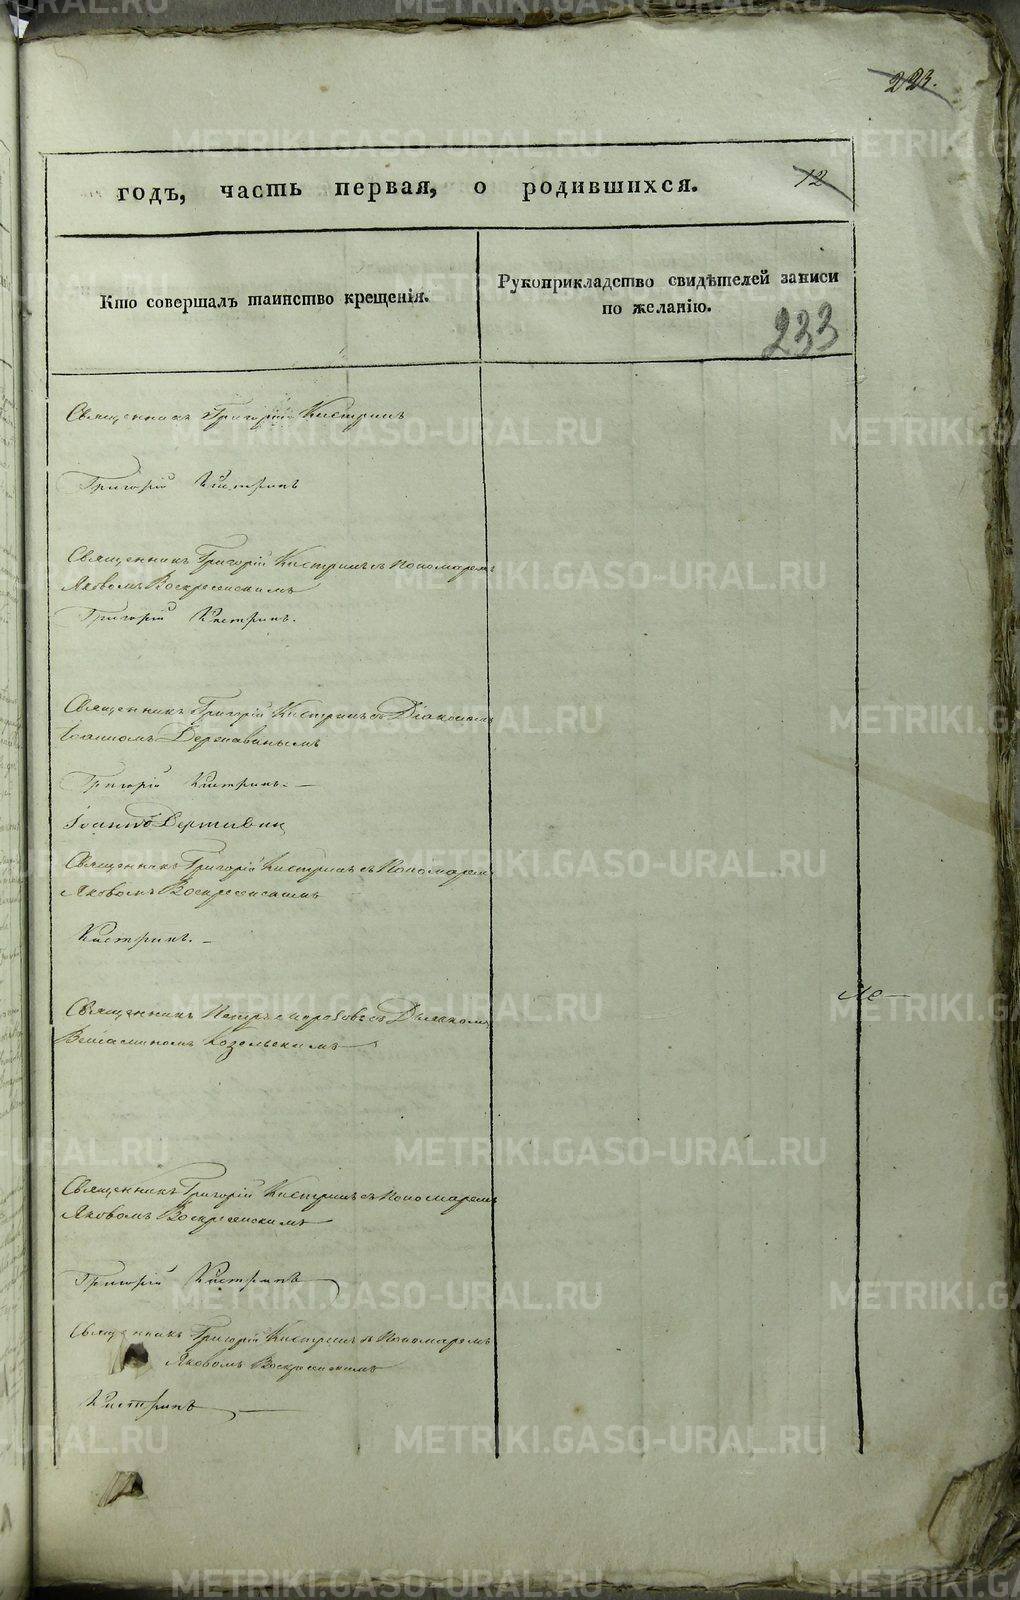 223.
годъ, часть первая, о родившихся.
12
Кто совершалъ таинство крещенія.
Рукоприкладство свидѣтелей записи
по желанію.
233
Священникъ Григорій Кистринъ
Григорій Кистринъ
Священникъ Григорій Кистринъ съ Пономаремъ
Яковомъ Воскресенскимъ
Григорій Кистринъ.
Священникъ Григорій Кистринъ съ Діакономъ
Іоанномъ Державинымъ
Григорій Кистринъ. —
Іоаннъ Державин
Священникъ Григорій Кистринъ съ Пономаремъ
Яковомъ Воскресенскимъ
Кистринъ. —
Священникъ Петръ съ Дьякомъ
Веніаминомъ Козельскимъ
Священникъ Григорій Кистринъ съ Пономаремъ
Яковомъ Воскресенскимъ
Григорій Кистринъ
Священникъ Григорій Кистринъ съ Пономаремъ
Яковомъ Воскресенскимъ
Кистринъ —
METRIKI.GASO-URAL.RU